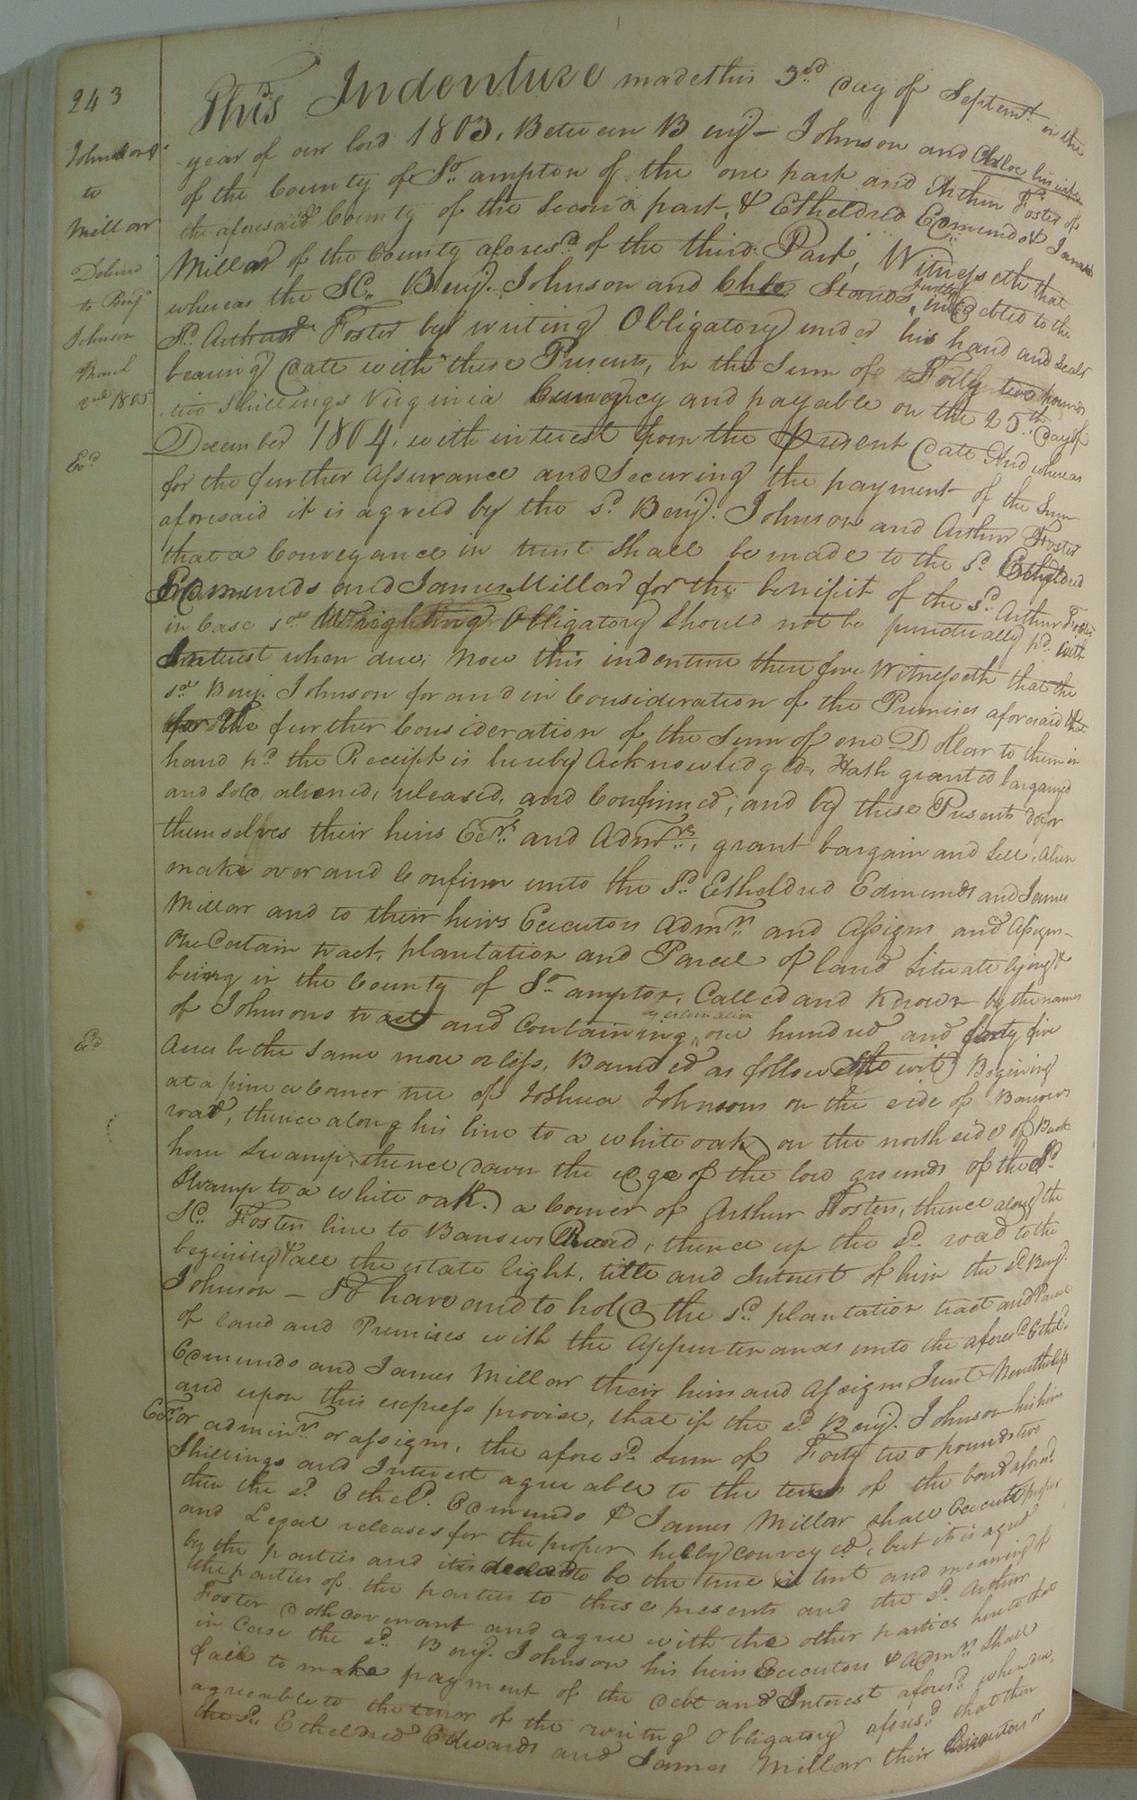 243
Johnson &c
to
Millar
Delivd
to Benj
Johnson
March
1805
Exd
Exd
This Indenture made this 3rd day of Septemr. in the
year of our lord 1803. Between Benj- Johnson and Chloe his wife
of the County of So. ampton of the one part and Arthur Foster of
the aforesaid County of the Second part, & Etheldred Edmunds & James
Millar of the County aforesd. of the third Part, Witnesseth that
whereas the sd. Benj. Johnson and Chloe Stands Justly indebted to the
Sd. Arthur Foster by writing Obligatory under his hand and seal
bearing date with these Presents, in the Sum of Forty two pounds
two Shillings Virginia Currency and payable on the 25th. day of
December 1804. with interest from the present date And whereas
for the further Assurance and Securing the payment of the Sum
aforesaid it is agreed by the sd. Benj. Johnson and Arthur Foster
that a Conveyance in trust Shall be made to the sd. Etheldred
Edmunds and James Millar for the benifit of the sd. Arthur Foster
in Case sd. Wrighting Obligatory Should not be punctually pd. with
Interest when due, Now this indenture therefore Witnesseth that the
sd. Benj. Johnson for and in Consideration of the Premises aforesaid
for the further Consideration of the Sum of one Dollar to them in
hand pd. the Receipt is hereby Acknowledged, Hath granted bargained
and Sold, aliened, released, and Confirmed; and by these Presents doth
themselves their heirs Exrs. and Admrs., grant bargain and Sell, Alien
make over and Confirm unto the Sd. Etheldred Edmunds and James
Millar and to their heirs Executors Admrs. and Assigns and Assigns-
One Certain tract, plantation and Parcel of land Situate lying &
being in the County of So. ampton, Called and Known by the names
of Johnsons tract and Containing by estimation one hundred and forty five
Acres be the Same more or less, Bounded as follows (to wit) Begining
at a pine a Corner tree of Joshua Johnsons on the side of Barrows
road, thence along his line to a white oak on the north side of Buck
horn Swamp, thence down the edge of the low grounds of the Sd.
Swamp to a white oak, a Corner of Arthur Fosters, thence along the
Sd. Fosters line to Barrows Road, thence up the sd. road to the
begining & all the estate right, title and Interest of him the sd. Benj.
Johnson - To have and to hold the sd. plantation tract and Parcel
of land and Premises with the Appurtenances unto the aforesd. Etheld.
Edmunds and James Millar their heirs and Assigns In trust Nevertheless
and upon this express proviso, that if the sd. Benj. Johnson his heirs
Exrs. or adminrs. or assigns, the aforesd. sum of Forty two pounds two
Shillings and Interest agreeable to the terms of the bond aforesd.
then the sd. Etheld. Edmunds & James Millar shall Execute proper
and Legal releases for the proper hereby conveyed, but it is agreed
by the parties and it is declared to be the true intent and meaning of
the parties of the parties to these presents and the sd. Arthur
Foster doth covenant and agree with the other parties hereto that
in Case the sd. Benj. Johnson his heirs Executors & Admrs. Shall
fail to make payment of the Debt and Interest aforesd. when due,
agreeable to the tenor of the writing Obligatory aforesd. that then
the sd. Etheldred Edwards and James Millar their Executors or